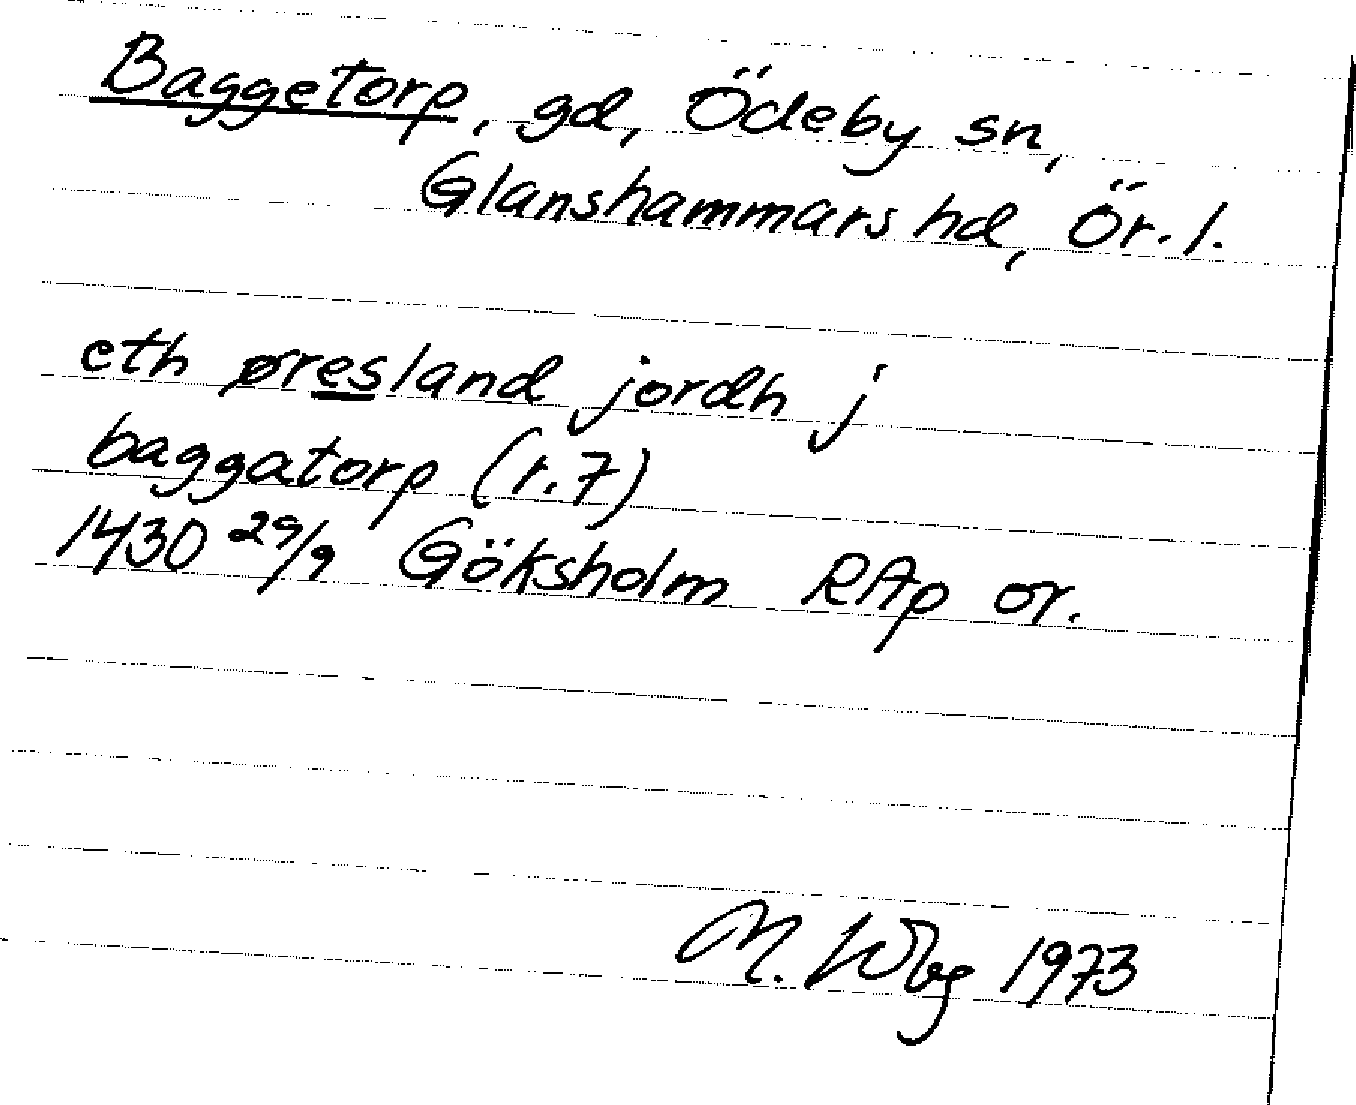 Baggetorp, gd, Ödeby sn,
Glanshammars hd, Ör. l.
eth øresland jordh j
baggatorp (r. 7)
1430 29/9 Göksholm RAp or.
M. Wbg 1973